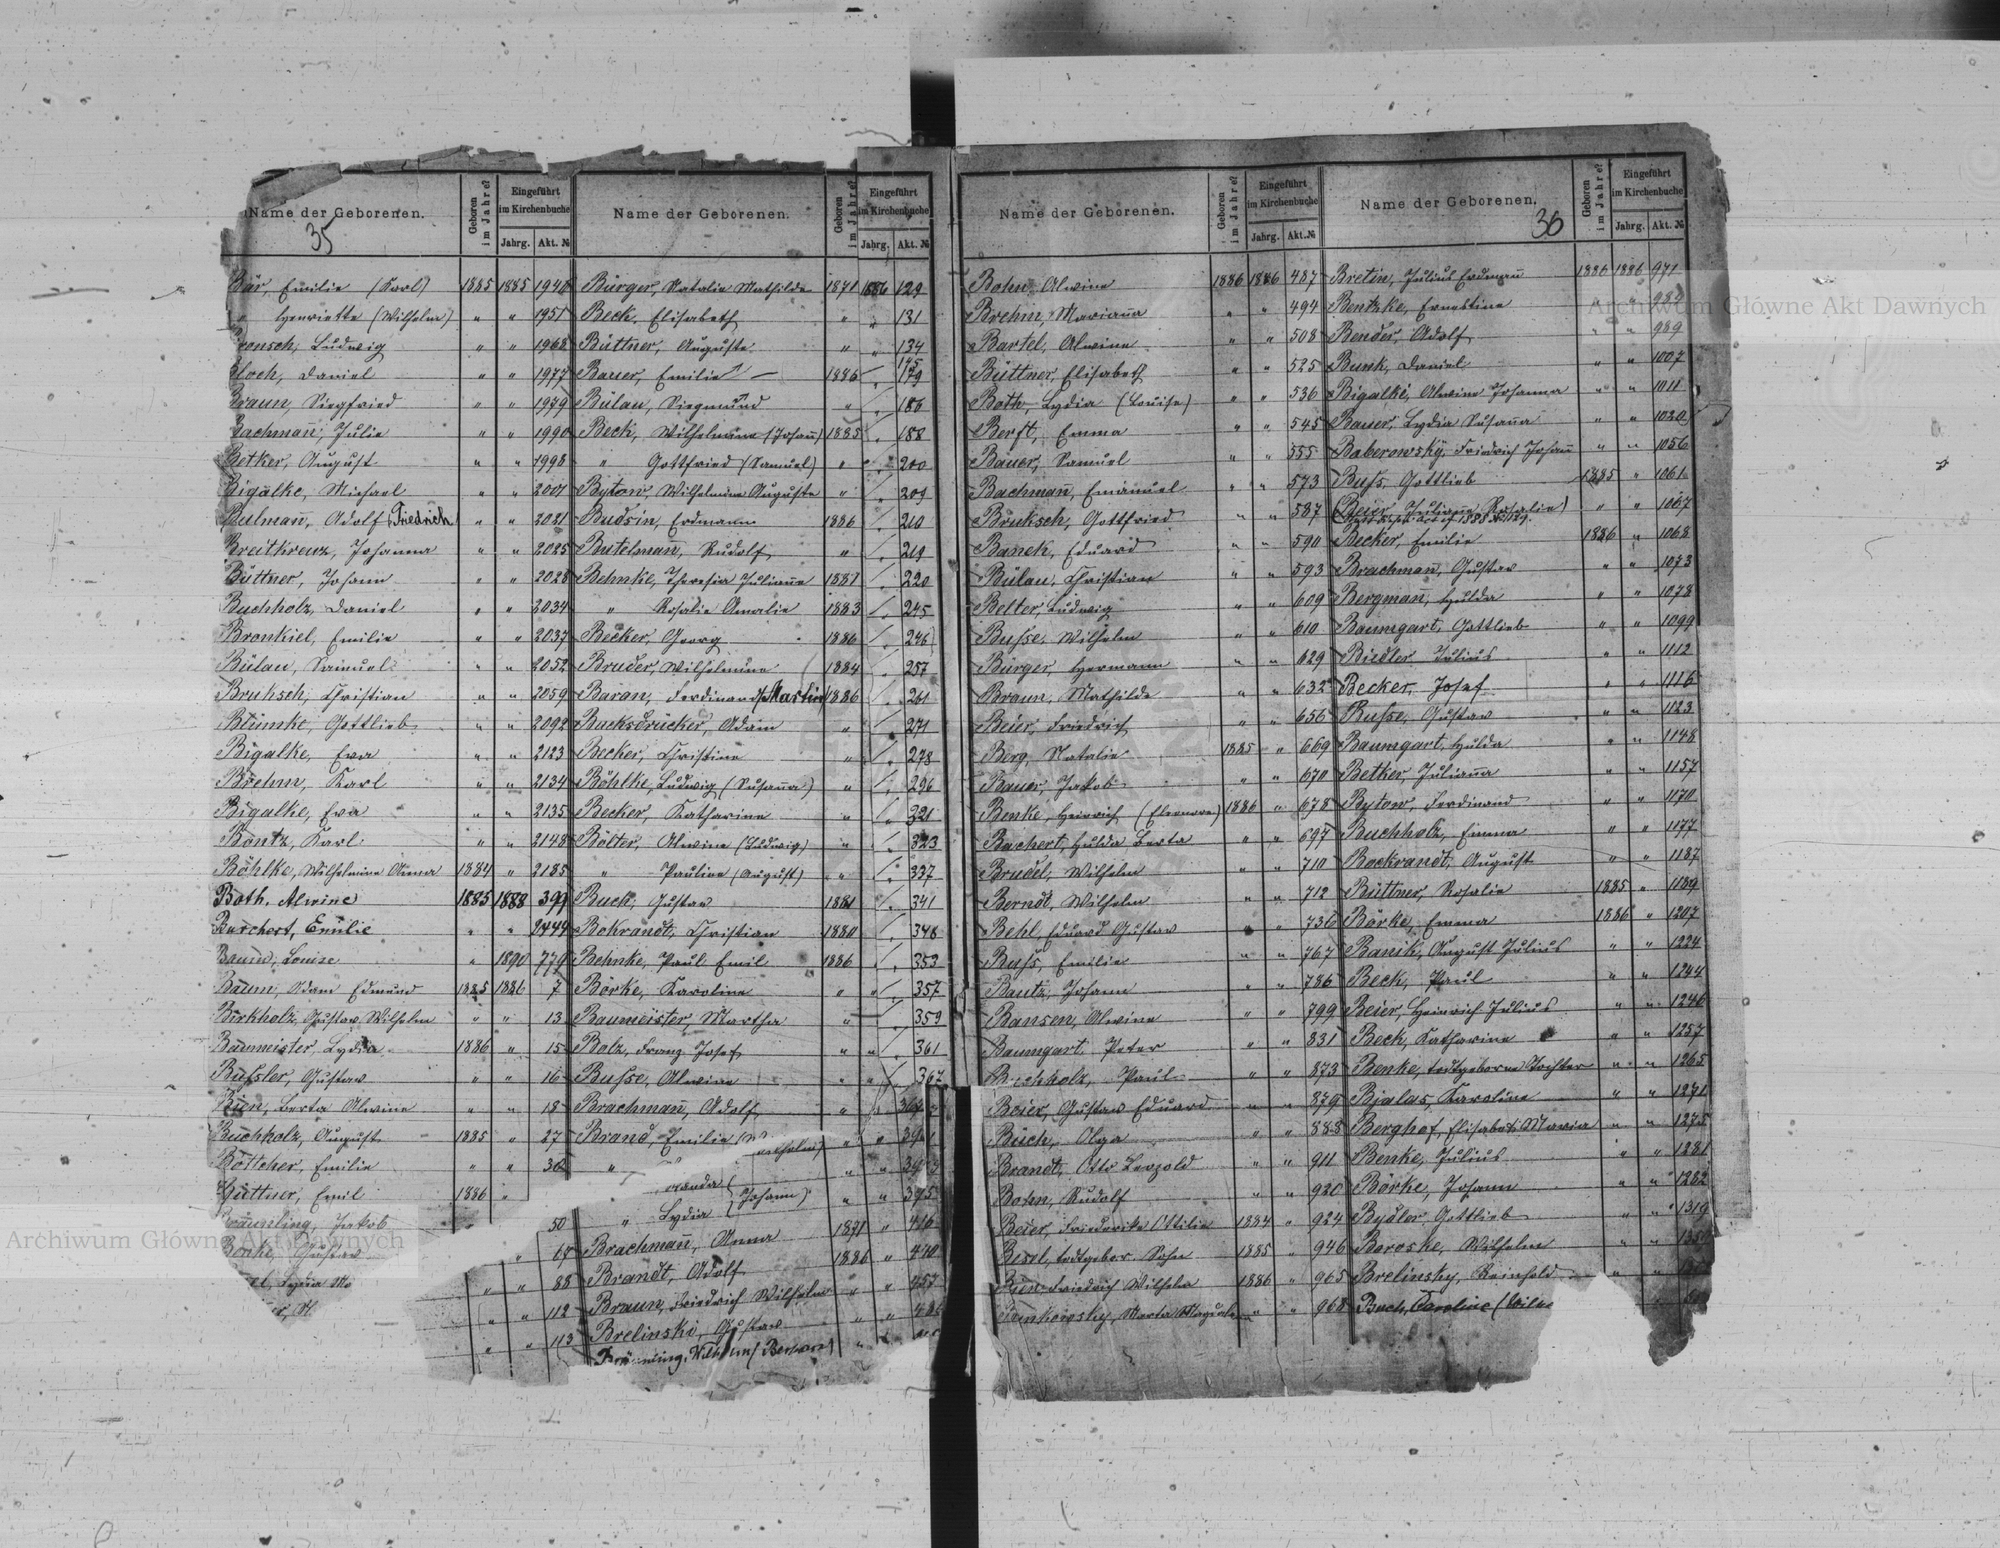 Name der Geborenen. Geboren im Jahre? Eingeführt im Kirchenbuche Jahrg. Akt. №
35
Bär, Emilie (Karl) 1885 1885 1946
" Henriette (Wilhelm) " " 1951
Bronsch, Ludwig " " 1968
Bloch, Daniel " " 1977
Braun, Siegfried " " 1979
Bachmann, Julie " " 1990
Betker, August " " 1998
Bigalke, Michael " " 2001
Bulmann, Adolf (Friedrich " " 2021
Breitkreuz, Johanna " " 2025
Büttner, Johann " " 2028
Buchholz, Daniel " " 2034
Bronkiel, Emilie " " 2037
Bülau, Samuel " " 2052
Bruksch, Christian " " 2059
Blümke, Gottlieb " " 2092
Bigalke, Eva " " 2123
Brehm, Karl " " 2134
Bigalke, Eva " " 2135
Bontz, Karl " " 2148
Böhlke, Wilhelmine Anna 1884 " 2185
Both, Alwine 1885 1888 399
Burchert, Emilie " "
Baum, Louise " 1890
Baum, Adam Edmund 1885 1886 7
Birkholz, Gustav Wilhelm " " 13
Baumeister, Lydia 1886 " 15
Bussler, Gustav " " 16
Bien, Berta Alwine " " 18
Buchholz, August 1885 " 27
Böttcher, Emilie " " 36
Hüttner, Emil 1886 "
Bräunling, Jakob " 50
Gustav " 67
Lydia " " 88
" " 112
" " 113
Name der Geborenen. Geboren im Jahre? Eingeführt im Kirchenbuche Jahrg. Akt. №
Bürger, Natalie Mathilde 1871 1886 129
Beck, Elisabeth " " 131
Büttner, Auguste " " 134
Bauer, Emilie 1886 " 179
Bülau, Siegmund " " 186
Beck, Wilhelmine (Johann) 1885 " 188
" Gottfried (Samuel) " " 200
Bytow, Wilhelmine Auguste " " 209
Budsin, Erdmann 1886 " 210
Butelmann, Rudolf " " 219
Behnke, Theresia Julianne 1881 " 220
" Rosalie Amalie 1883 " 245
Becker, Georg 1886 " 246
Bruder, Wilhelmine 1884 " 257
Baran, Ferdinand (Martin) 1886 " 261
Backsdrücker, Adam " " 271
Becker, Christine " " 278
Böhlke, Ludwig (Susanna) " " 296
Becker, Katharine " " 321
Bölter, Alwine (Ludwig) " " 323
" Pauline (August) " " 337
Buck, Gustav 1881 " 341
Bohrandt, Christian 1880 " 348
Behnke, Paul Emil 1886 " 353
Börke, Karoline " " 357
Baumeister Martha " " 359
Bolz, Franz Josef " " 361
Busse, Alwine " " 362
Brachmann, Adolf " "
Brand, Emilie " "
" " "
" Lydia (Johann) " " 395
Brachmann, Anna 1871 " 416
Brandt, Adolf 1886 " 440
Braun, Friedrich Wilhelm " " 453
Brelinski, Gustav " "
Bräunling, Wilhelm " "
Name der Geborenen. Geboren im Jahre? Eingeführt im Kirchenbuche Jahrg. Akt. №
Bohn, Alwine 1886 1886 487
Brehm, Marianna " " 494
Bartel, Alwine " " 508
Büttner, Elisabeth " " 525
Both, Lydia (Louise) " " 536
Berft, Emma " " 545
Bauer, Samuel " " 555
Bachmann, Emanuel " " 573
Bruksch, Gottfried " " 587
Banek, Eduard " " 590
Bülau, Christian " " 593
Belter, Ludwig " " 609
Busse, Wilhelm " " 610
Bürger, Hermann " " 629
Braun, Mathilde " " 632
Beier, Friedrich " " 656
Berg, Natalie 1885 " 669
Bauer, Jakob " " 670
Benke, Heinrich (Eleonore) 1886 " 678
Bachert, Hulda Berta " " 697
Brudel, Wilhelm " " 710
Berndt, Wilhelm " " 712
Behl, Eduard Gustav " " 736
Buss, Emilie " " 767
Bautz, Johann " " 786
Bansen, Alwine " " 799
Baumgart, Peter " " 831
Buchholz, Paul " " 873
Beier, Gustav Eduard " " 879
Büch, Olga " " 888
Brandt, Otto Leopold " " 911
Bohn, Rudolf " " 920
Beier, Friederike Ottilie 1884 " 924
Besel, todtgebor. Sohn 1885 " 946
Bien, Friedrich Wilhelm 1886 " 965
Marta " " 968
Name der Geborenen. Geboren im Jahre? Eingeführt im Kirchenbuche Jahrg. Akt. №
36
Bretin, Julius Erdmann 1886 1886 971
Bentzke, Ernestine " " 982
Bender, Adolf " " 989
Bunk, Daniel " " 1007
Bigalke, Alwine Johanna " " 1011
Bauer, Lydia Susanna " " 1030
Baberowsky, Friedrich Johann " " 1056
Buss, Gottlieb 1885 " 1061
(Beier, Juliane Rosalie) " " 1067
Becker, Emilie 1886 " 1068
Brachmann, Gustav " " 1073
Bergman, Hulda " " 1078
Baumgart, Gottlieb " " 1099
Biedler, Julius " " 1112
Becker, Josef " " 1116
Busse, Gustav " " 1123
Baumgart, Hulda " " 1148
Betker, Julianna " " 1157
Bytow, Ferdinand " " 1170
Buchholz, Emma " " 1177
Bockrandt, August " " 1187
Büttner, Rosalie 1885 " 1189
Börke, Emma 1886 " 1207
Banik, August Julius " " 1224
Beck, Paul " " 1244
Beier, Heinrich Julius " " 1246
Beck, Katharine " " 1257
Benke, todtgeborene Tochter " " 1265
Bjalas, Karoline " " 1271
Berghof, Elisabet Maria " " 1275
Benke, Julius " " 1281
Börke, Johann " " 1282
Bydler, Gottlieb " " 1319
Boroske, Wilhelm " "
Brelinsky, Reinhold
Buch, Caroline
Archiwum Główne Akt Dawnych
Archiwum Główne Akt Dawnych